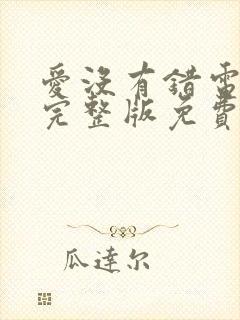 愛沒有錯雷
完整版免費
瓜達尔